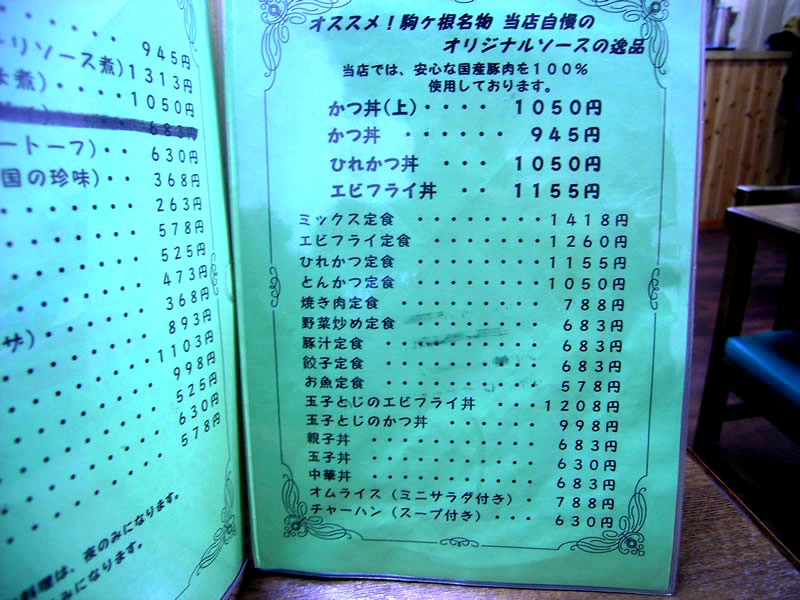 945円
リソース煮) 1313円
煮)・・・・・ 1050円
683円
ートーフ)・・ 630円
国の珍味)・・ 368円
263円
578円
525円
473円
368円
ザ)・・・・ 893円
1103円
998円
525円
630円
578円
料理は、夜のみになります。
みになります。
オススメ！駒ヶ根名物 当店自慢の
オリジナルソースの逸品
当店では、安心な国産豚肉を１００％
使用しております。
かつ丼(上)・・・・ 1050円
かつ丼 ・・・・・・ 945円
ひれかつ丼 ・・・ 1050円
エビフライ丼 ・・・ 1155円
ミックス定食 ・・・・・・・・1418円
エビフライ定食 ・・・・・・・1260円
ひれかつ定食 ・・・・・・・・1155円
とんかつ定食 ・・・・・・・・1050円
焼き肉定食 ・・・・・・・・・ 788円
野菜炒め定食 ・・・・・・・・ 683円
豚汁定食 ・・・・・・・・・・ 683円
餃子定食 ・・・・・・・・・・ 683円
お魚定食 ・・・・・・・・・・ 578円
玉子とじのエビフライ丼 ・・・1208円
玉子とじのかつ丼 ・・・・・・ 998円
親子丼 ・・・・・・・・・・・ 683円
玉子丼 ・・・・・・・・・・・ 630円
中華丼 ・・・・・・・・・・・ 683円
オムライス（ミニサラダ付き）・ 788円
チャーハン（スープ付き）・・・ 630円